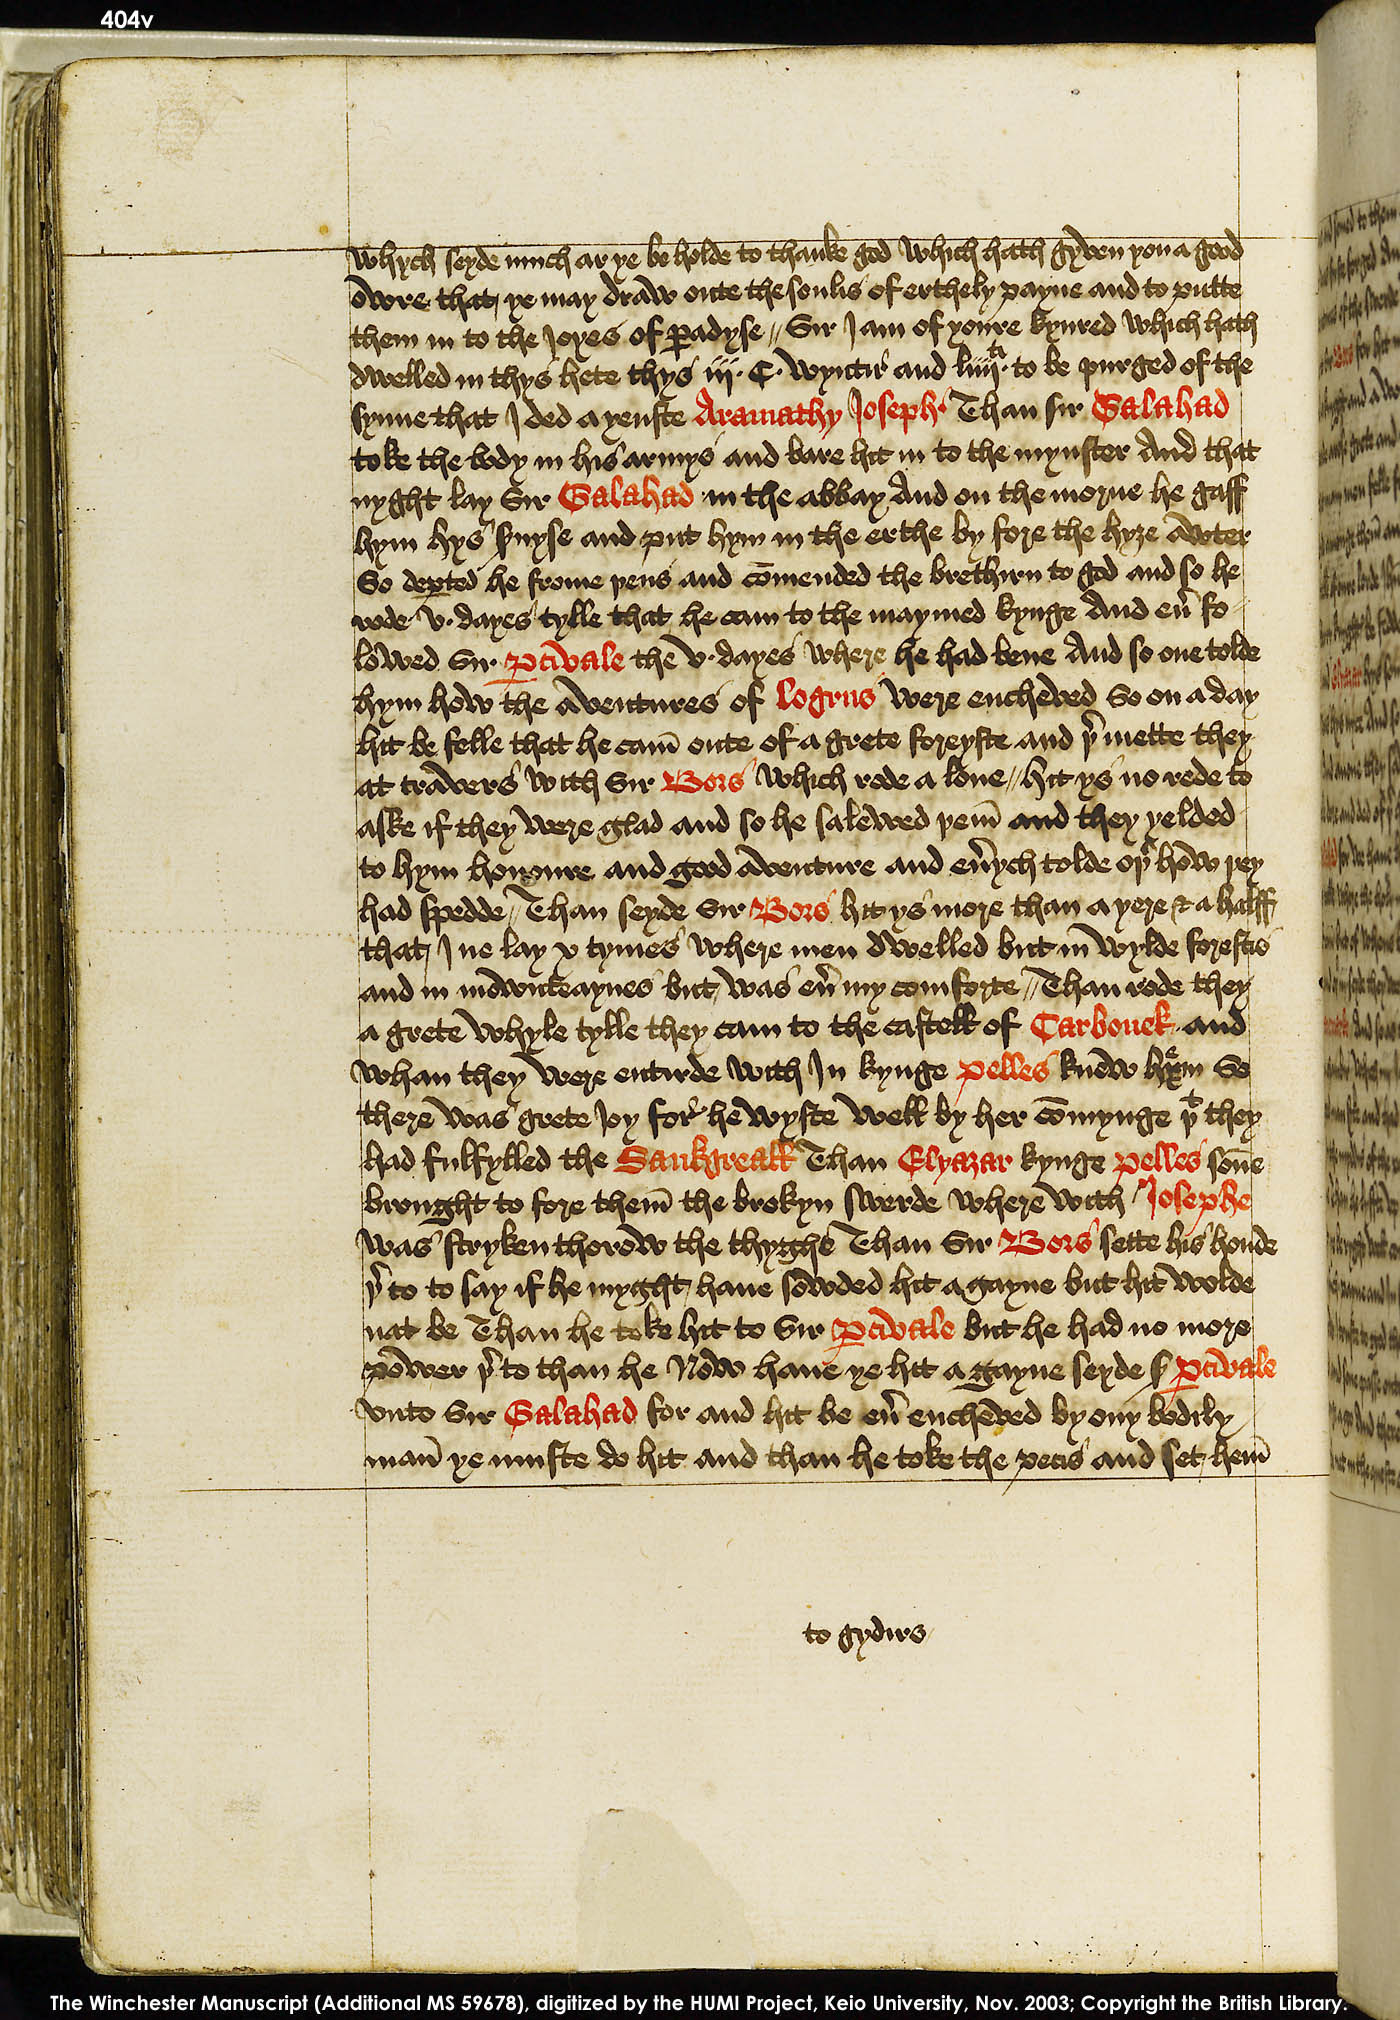 404v
whych seyde much ar ye be holde to thanke god which hath gyven you a good
owre that ye may draw oute the soulis of erthely payne and to putte
them in to the Joyes of ꝑadyse // Sir I am of youre kynred which hath
dwelled in thys hete thys iij · C · wyntir and liiij^ti · to be purged of the
synne that I ded ayenste Aramathy Joseph · Than sir Galahad
toke the body in his armys and bare hit in to the mynster And that
nyght lay Sir Galahad in the abbay And on the morne he gaff
hym hys suyse and put hym in the erthe by fore the hyze awter
So deꝑted he frome þens and cōmended the brethirn to god and so he
rode v · dayes tylle that he cam to the maymed kynge And eu̾ fo-
lowed Sir ꝑcivale the v · dayes where he had bene And so one tolde
hym how the aventures of Logrus were encheved So on a day
hit be felle that he cam̄ oute of a grete foreyste and þ̾ mette they
at travers with Sir Bors which rode a lone // hit ys no rede to
aske if they were glad and so he salewed þem̄ and they yelded
to hym honoure and good aventure and eu̾ych tolde oþ^r how þey
had spedde // Than seyde Sir Bors hit ys more than a yere & a halff
that I ne lay x tymes where men dwelled but in wylde forestis
and in mowntaynes but was eu̾ my comforte // Than rode they
a grete whyle tylle they cam to the castell of Carbonek and
whan they were entirde with In kynge Pelles knew hem So
there was grete Joy for he wyste well by her cōmynge þ^t they
had fulfylled the Sankgreall Than Elyazar kynge Pelles sone
brought to fore them̄ the brokyn swerde where with Josephe
was stryken thorow the thyghe Than Sir Bors sette his honde
þ̾ to to say if he myght haue sowded hit agayne but hit wolde
nat be Than he toke hit to Sir ꝑcivale but he had no more
power þ̾ to than he Now haue ye hit agayne seyde ſ ꝑcivale
vnto Sir Galahad for and hit be eu̾ encheved by ony bodily
man̄ ye muste do hit and than he toke the pecis and set hem̄
to gydirs
The Winchester Manuscript (Additional MS 59678), digitized by the HUMI Project, Keio University, Nov. 2003; Copyright the British Library.